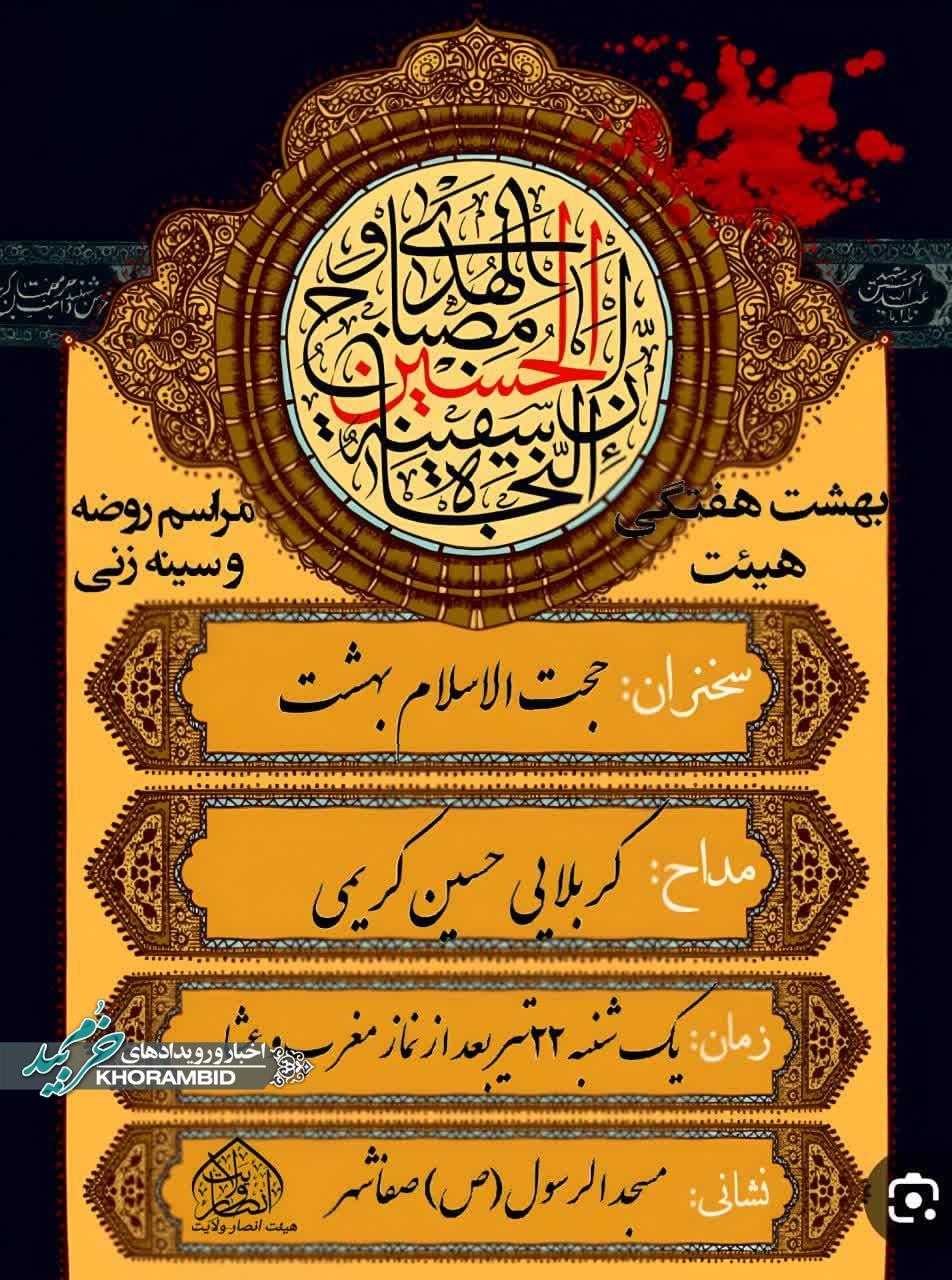 إن الحسین مصباح الهدی و سفینة النجاة
بهشت هفتگی
هیئت
مراسم روضه
و سینه زنی
سخنران: حجت الاسلام بهشت
مداح: کربلایی حسین کریمی
زمان: یک شنبه ۲۲ تیر بعد از نماز مغرب و عشا
اخبار و رویدادهای
خرمبید
KHORAMBID
نشانی: مسجد الرسول (ص) صفاشهر
انصار ولایت
هیئت انصار ولایت